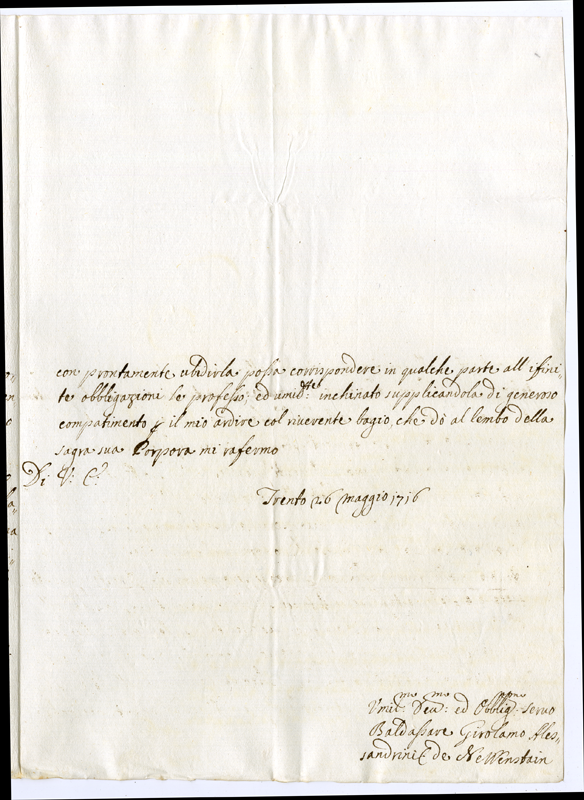 con prontamente ubidirla possa corrispondere in qualche parte all ifini=
te obbligazioni le professo; ed umid:tte inchinato supplicandola di generoso
compatimento p il mio ardire col riverente bagio, che dò al lembo della
sagra sua Porpora mi rafermo
Di V: E:
Trento 26 Maggio 1716
Umil:mo Dew:mo ed Obblig:mo servo
Baldassare Girolamo Ales=
sandrini de NeWenstain